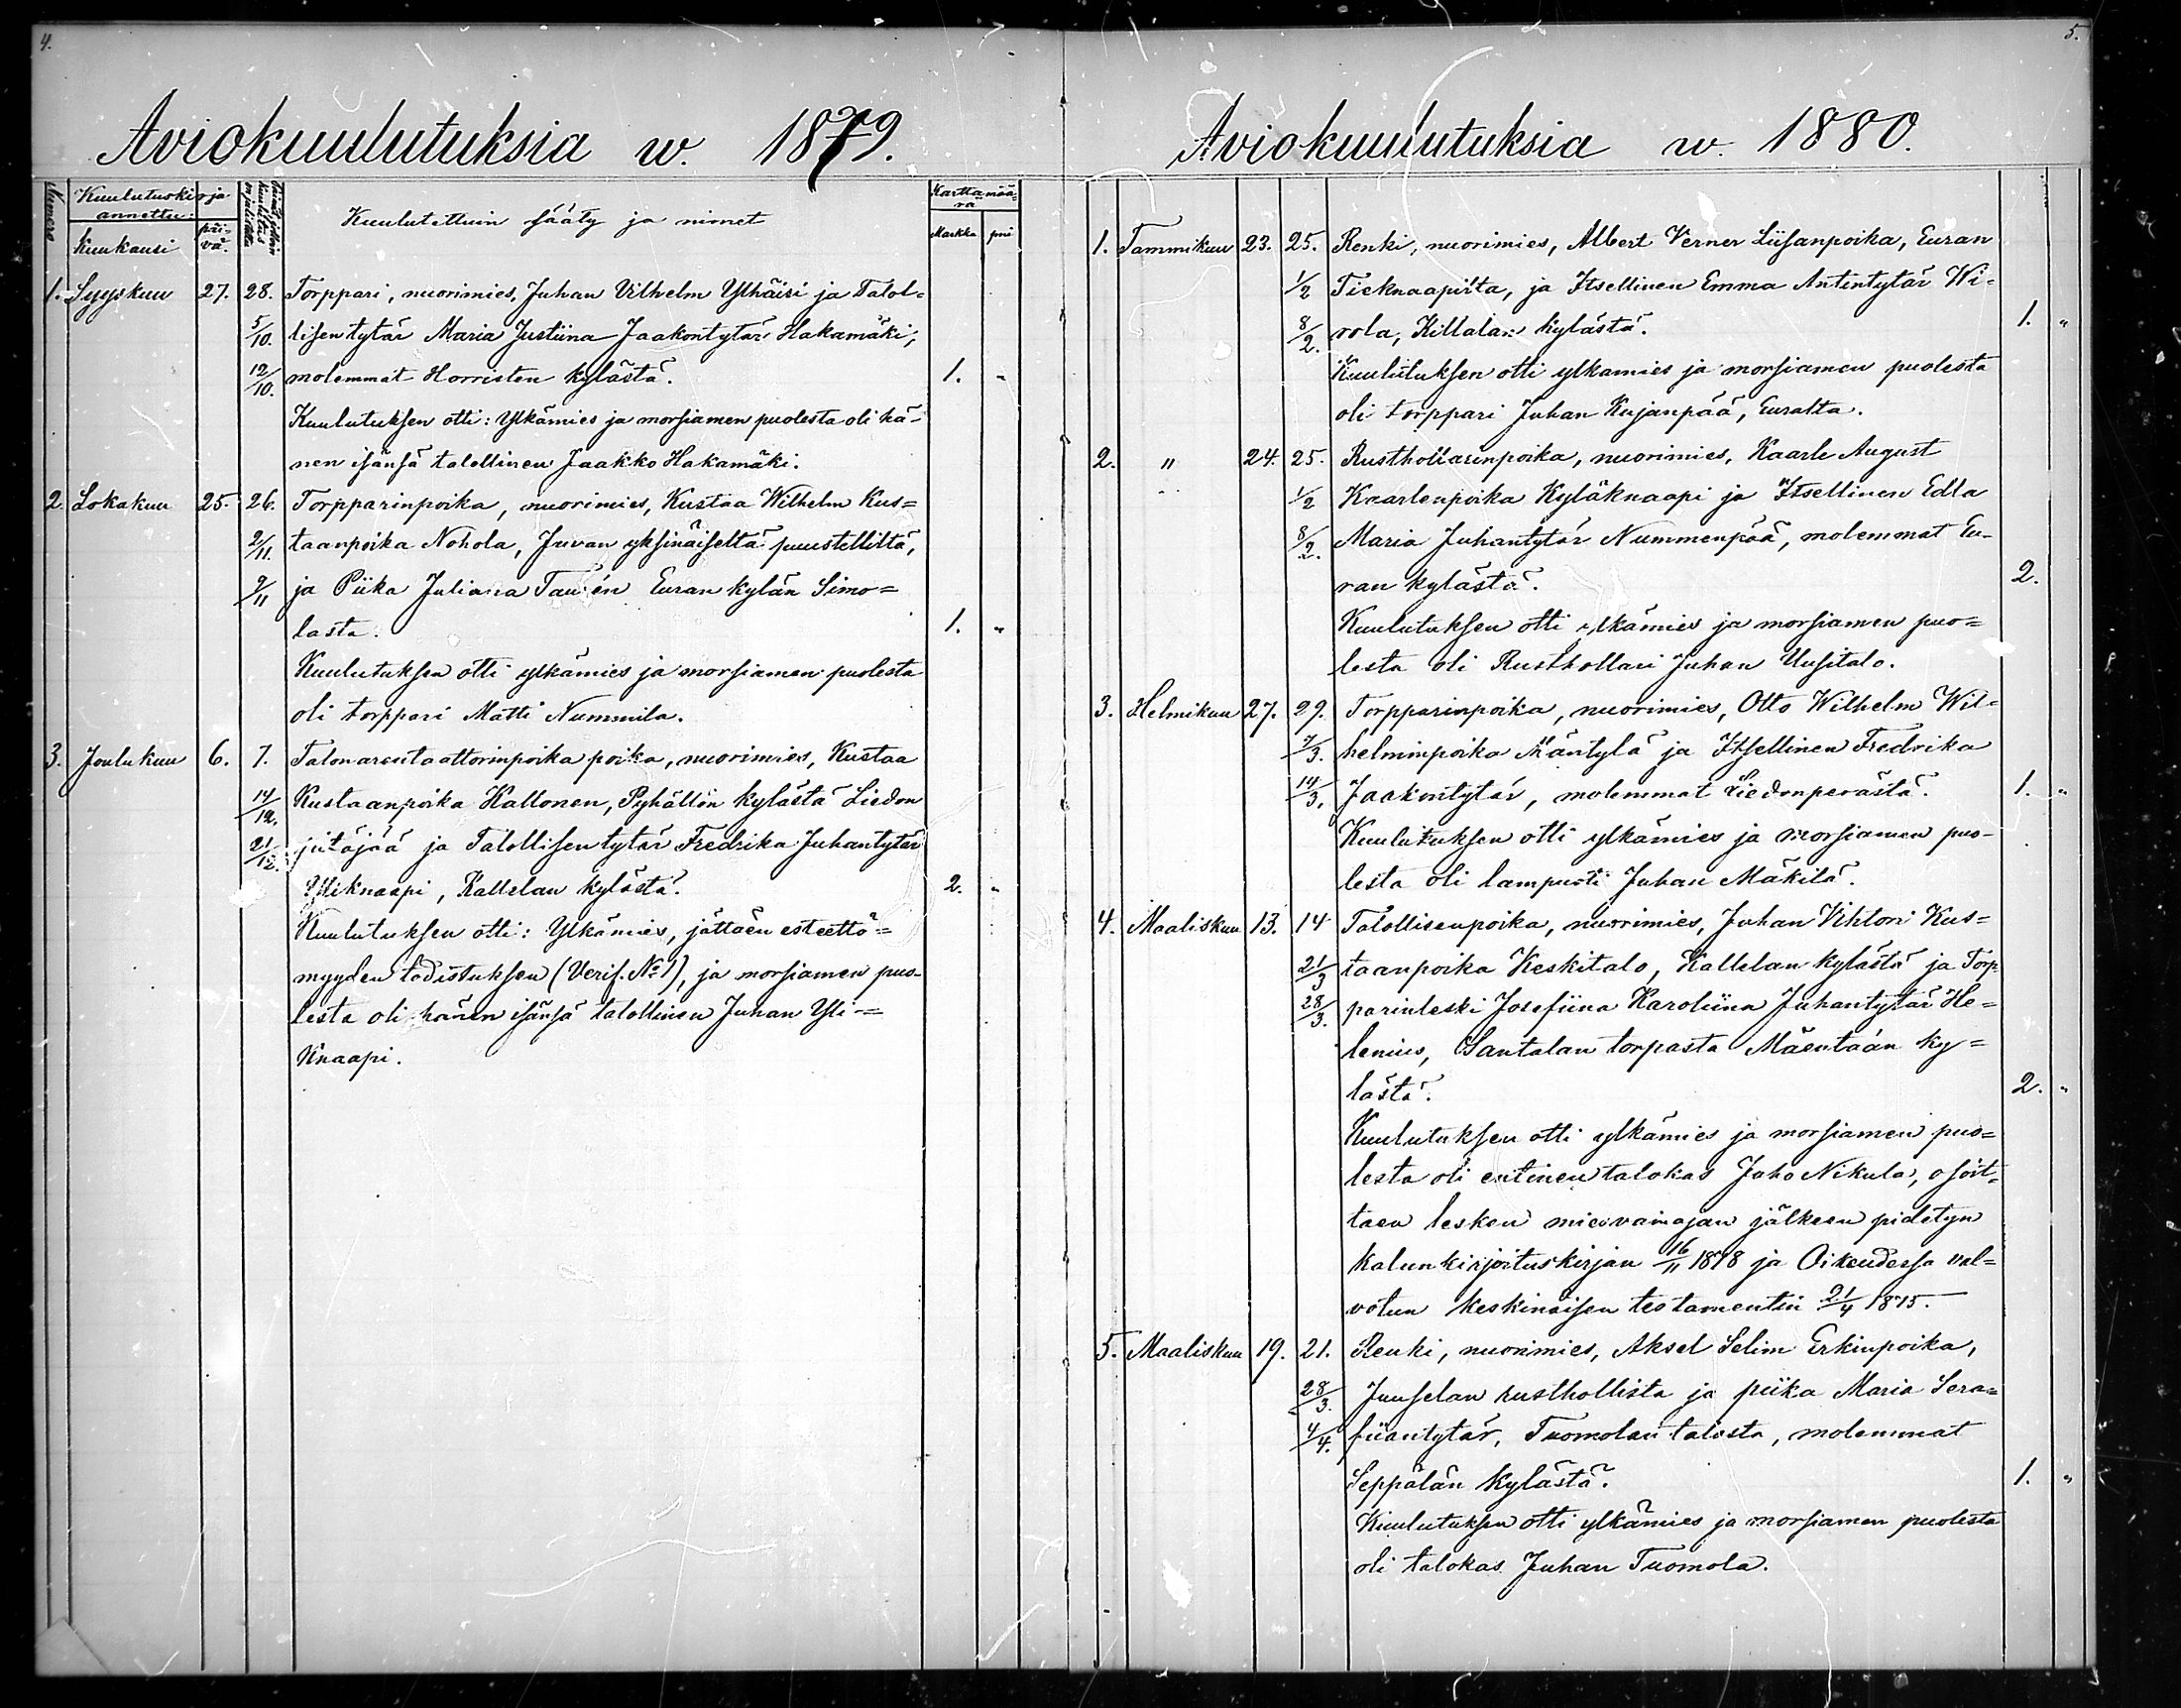 4.
Aviokuulutuksia w. 1879.
Numero
Kuulutuskirja annettu:
Kuukausi
päi-
vä.
Kuulutettuin sääty ja nimet
Kartta mää-
rä
Markka
pni
1. Syyskuu 27. 28. Torppari, nuorimies, Juhan Vilhelm Ylhäisi ja Talol-
5/10. lisen tytär Maria Justiina Jaakontytär Hakamäki,
12/10. molemmat Horristen kylästä. 1. "
Kuulutuksen otti: Ylkämies ja morsiamen puolesta oli hä-
nen isänsä talollinen Jaakko Hakamäki.
2. Lokakuu 25. 26. Torpparinpoika, nuorimies, Kustaa Wilhelm Kus=
2/11. taanpoika Nohola, Juvan yksinäiseltä puustelliltä,
9/11 ja Piika Juliana Taurén Euran kylän Simo=
lasta. 1. "
Kuulutuksen otti ylkämies ja morsiamen puolesta
oli torppari Matti Nummila.
3. Joulukuu 6. 7. Talonarentaattorinpoika poika, nuorimies, Kustaa
14/12. Kustaanpoika Kallonen, Pyhältön kylästä Liedon
21/12. pitäjää ja Talollisen tytär Fredrika Juhantytär
Yliknaapi, Kallelan kylästä. 2. "
Kuulutuksen otti: Ylkämies, jättäen esteettö=
myyden todistuksen (Verif. No 1), ja morsiamen puo-
lesta oli hänen isänsä talollinen Juhan Yli-=
Knaapi.
5.
Aviokuulutuksia w. 1880.
1. Tammikuu 23. 25. Renki, nuorimies, Albert Verner Liisanpoika, Euran
1/2 Tieknaapilta, ja Itsellinen Emma Antintytär Wi-
8/2. rola, Killalan kylästä. 1. "
Kuulutuksen otti ylkamies ja morsiamen puolesta
oli torppari Juhan Kujanpää, Euralta.
2. " 24. 25. Rusthollarinpoika, nuorimies, Kaarle August
1/2 Kaarlenpoika Kyläknaapi ja Itsellinen Edla
8/2. Maria Juhantytär Nummenpää, molemmat Eu-
ran kylästä. 2.
Kuulutuksen otti ylkämies ja morsiamen puo=
lesta oli Rusthollari Juhan Uusitalo.
3. Helmikuu 27. 29. Torpparinpoika, nuorimies, Otto Wilhelm Wil-
7/3. helminpoika Mäntylä ja Itsellinen Fredrika
14/3. Jaakontytär, molemmat Liedonperästä. 1. "
Kuulutuksen otti ylkämies ja morsiamen puo-
lesta oli lampuoti Juhan Mäkilä.
4. Maaliskuu 13. 14 Talollisenpoika, nuorimies, Juhan Vihtori Kus=
21/3 taanpoika Keskitalo, Kallelan kylästä ja Torp
28/3. parinleski Josefiina Karoliina Juhantytär He=
lenius, Santalan torpasta Mäentaán ky=
lästä. 2. "
Kuulutuksen otti ylkämies ja morsiamen puo=
lesta oli entinen talokas Juho Nikula, osoit-
taen lesken miesvainajan jälkeen pidetyn
kalunkirjoituskirjan 16/11 1878 ja Oikeudessa val=
votun keskinäisen testamentin 21/4 1875.
5. Maaliskuu 19. 21. Renki, nuorimies, Aksel Selim Erkinpoika,
28/3. Juuselan rusthollista ja piika Maria Sera=
4/4. fiiantytär, Tuomolan talosta, molemmat
Seppälän kylästä. 1. "
Kuulutuksen otti ylkämies ja morsiamen puolesta
oli talokas Juhan Tuomola.